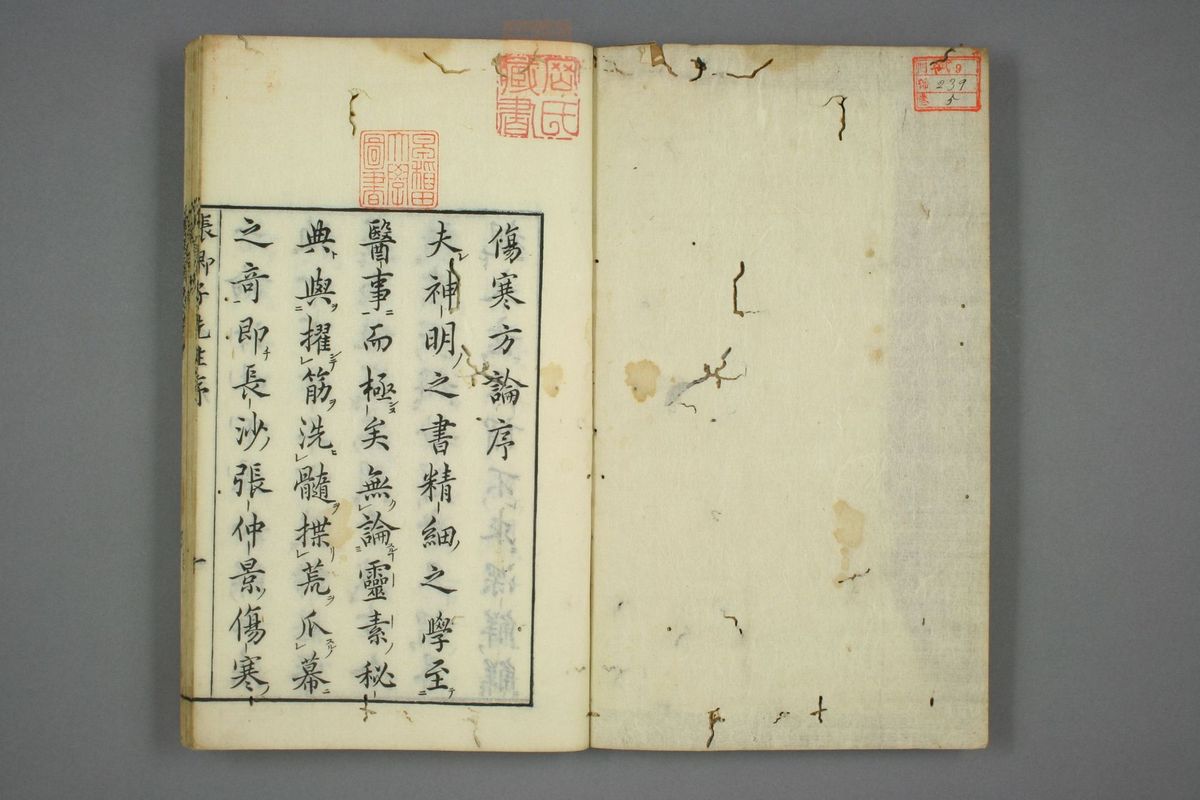 傷寒方論序
夫神明之書精細之學至
醫事而極矣無論靈素秘
典與擢筋洗髓揲荒爪幕
之奇即長沙張仲景傷寒
張卿子先生序
一
早稲田大學圖書
藏書
239
5